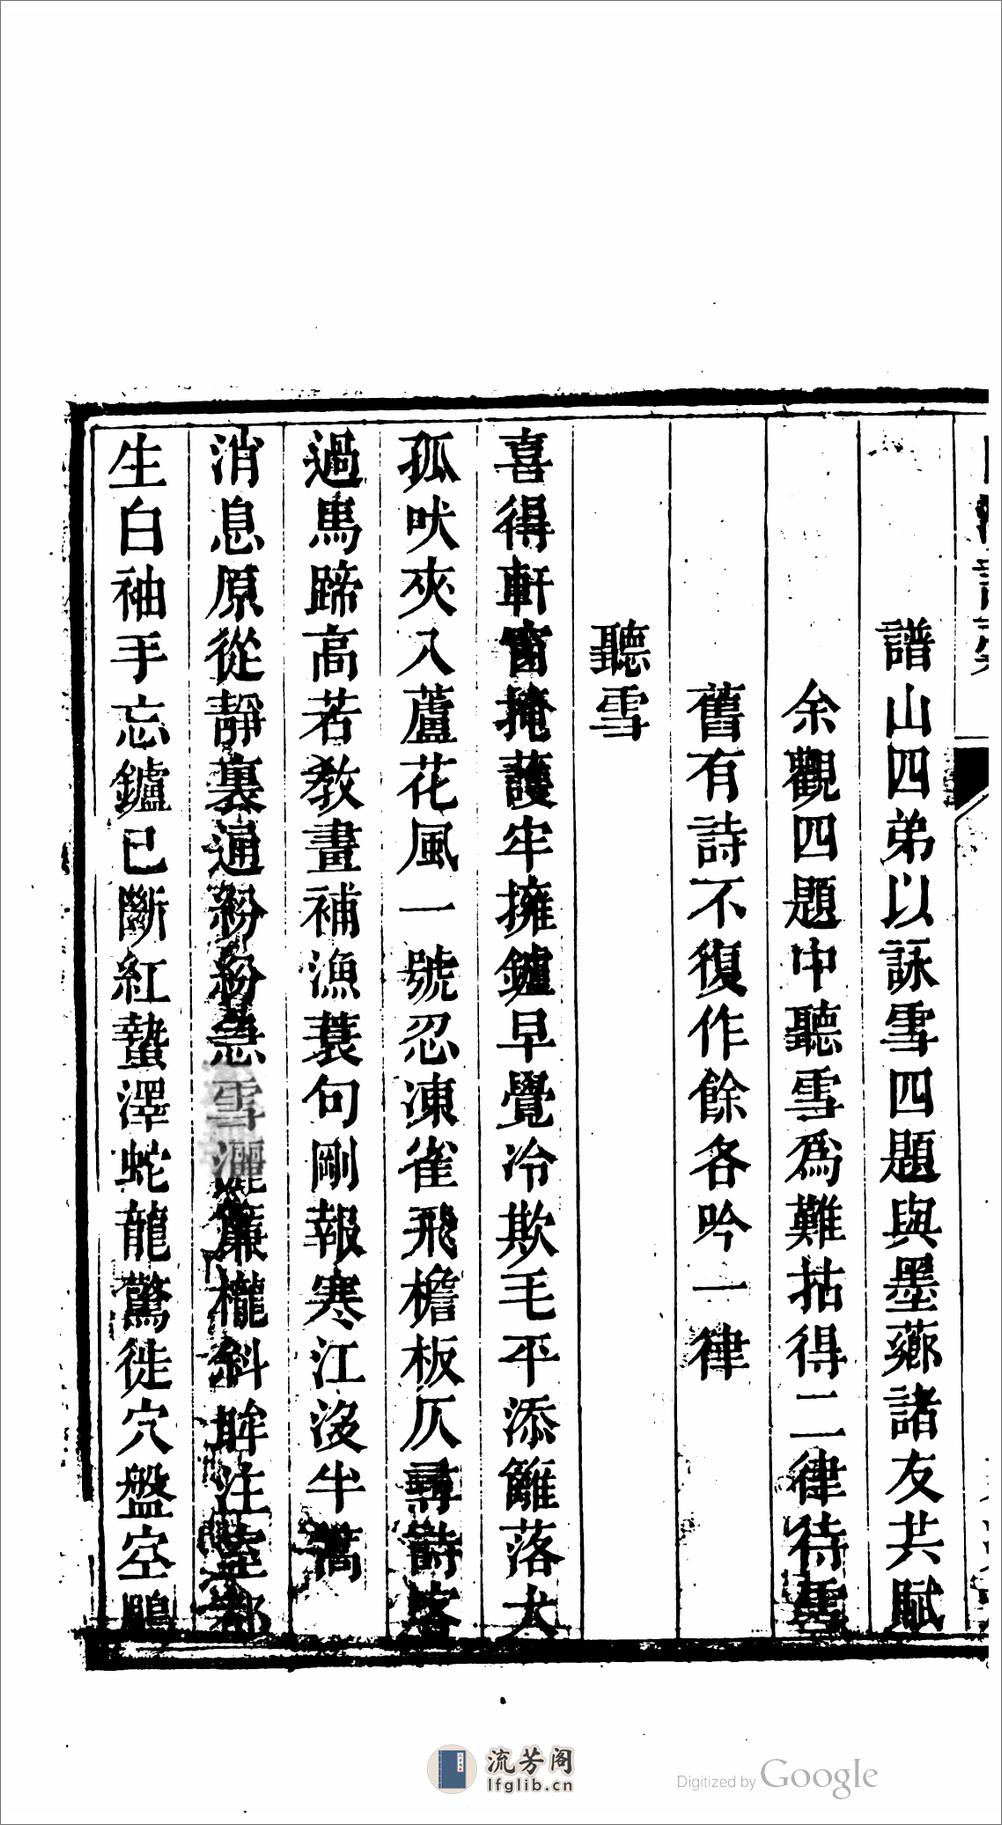 譜山四弟以詠雪四題與墨薌諸友共賦
余觀四題中聽雪爲難拈得二律待雪
舊有詩不復作餘各吟一律
聽雪
喜得軒窗掩護牢擁鑪早覺冷欺毛平添籬落犬
孤吠夾入蘆花風一號忍凍雀飛檐板仄尋詩客
過馬蹄高若教畫補漁蓑句剛報寒江沒半篙
消息原從靜裏通紛紛急雪灑簾櫳斜眸注室都
生白袖手忘鑪已斷紅蟄澤蛇龍驚徙穴盤空鵰
流芳阁
lfglib.cn
Digitized by Google